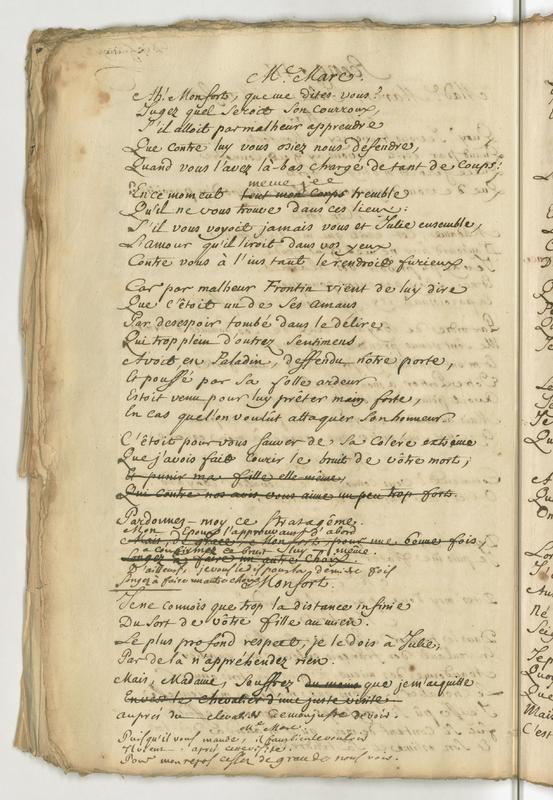 Me. Marc
Ah! Monfort, que me dites-vous?
Jugez quel seroit son courroux,
S'il alloit par malheur apprendre
Que contre luy vous osiez nous defendre,
Quand vous l'avez là-bas chargé de tant de coups!
même je
En ce moment tout mon corps tremble
Qu'il ne vous trouve dans ces lieux:
S'il vous voyoit jamais vous et Julie ensemble,
L'amour qu'il liroit dans vos yeux
Contre vous à l'instant le rendroit furieux
Car par malheur Frontin vient de luy dire
Que c'étoit un de ses amans
Par desespoir tombé dans le délire
Qui trop plein d'outrez sentimens
Avoit en Paladin, deffendu notre porte,
Et poussé par sa folle ardeur
Estoit venu pour luy prêter main forte,
En cas quel'on voulût attaquer son honneur.
C'étoit pour vous sauver de sa colere extrême
Que j'avois fait courir le bruit de vôtre mort;
Et punir ma fille elle-même,
Qui contre nos avis vous aime un peu trop fort.
Pardonnez-moy ce stratagême.
Mon Epoux l'approuvant d'abord
Mais, de grace, Monfort, pour une bonne fois,
a confirmé ce bruit luy même.
Songez à faire un autre choix.
D'ailleurs, je vous le dis pour la derniere fois
Songez à faire un autre choix
Monfort.
Je ne connois que trop la distance infinie
Du sort de vôtre fille au mien.
Le plus profond respect, je le dois à Julie,
Par delà n'appréhendez rien.
Mais, Madame, souffrez du moins que je m'acquitte
Envers le chevalier d'une juste visite
aupres du chevalier de mon juste devoir.
Me. Marc.
Puis qu'il vous mande, il faut bien le vouloir
Mais après cette visite.
Pour mon repos cessez de grace de nous voir.